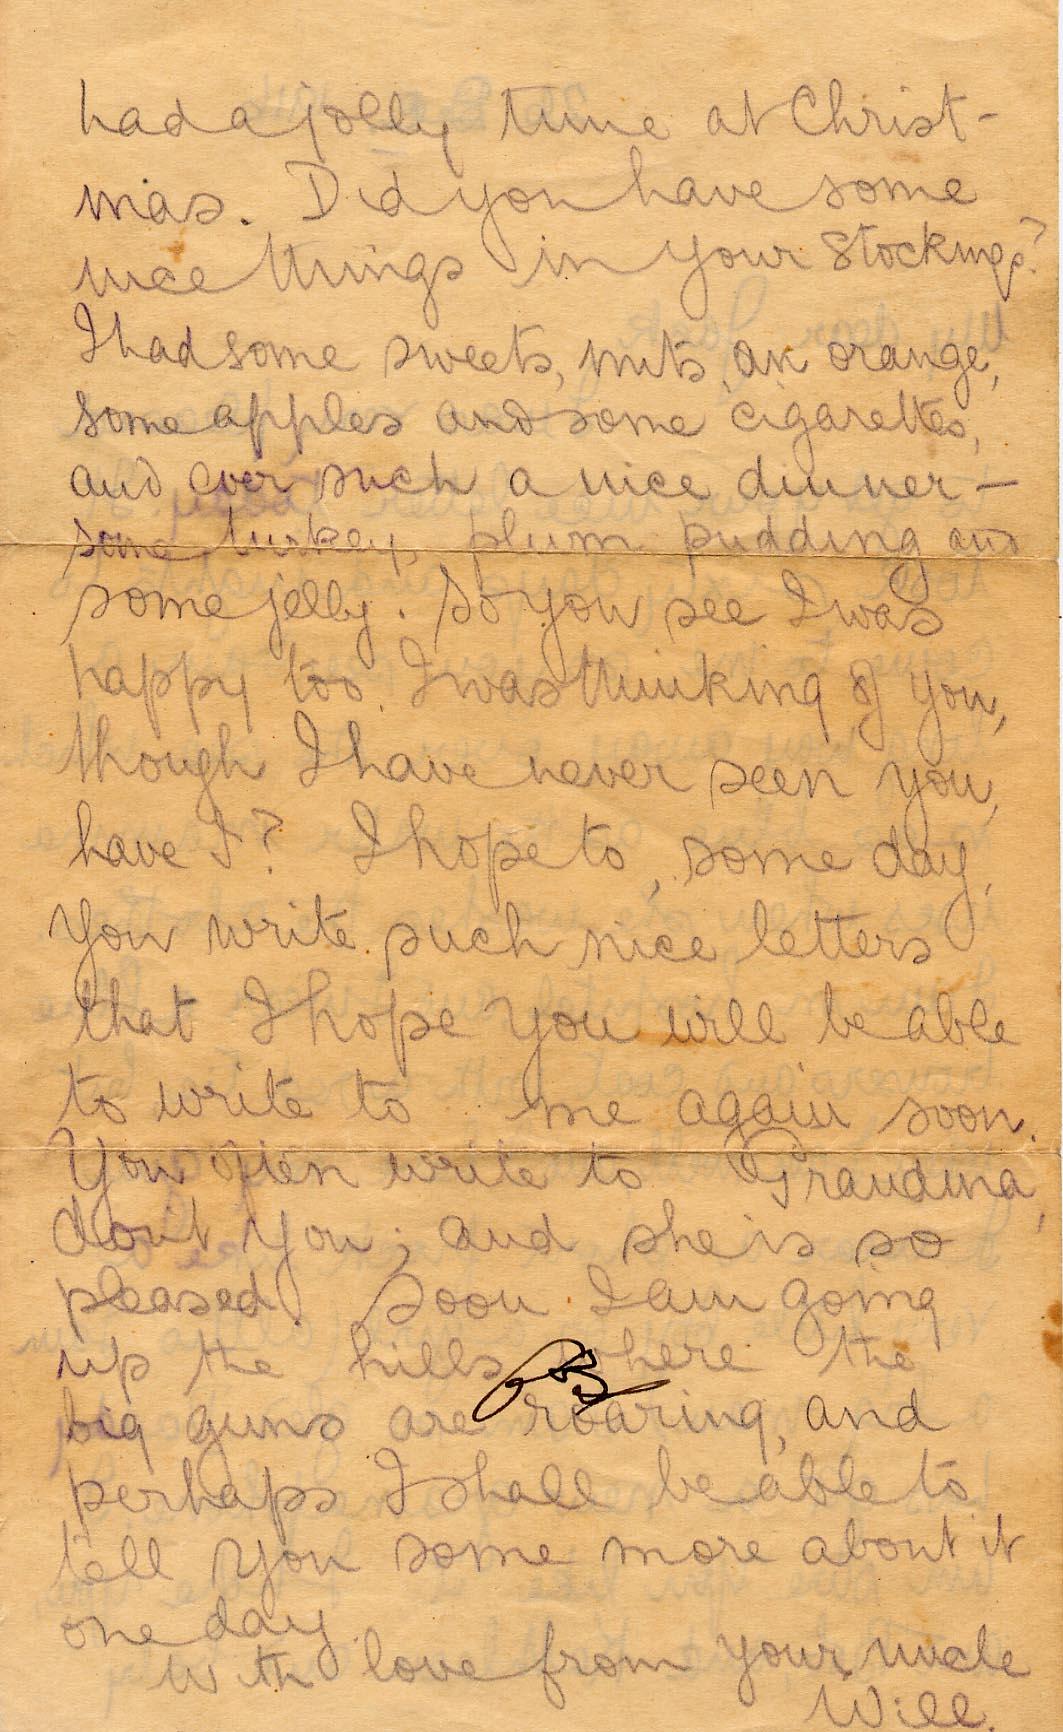 had a jolly time at Christ-
mas. Did you have some
nice things in your stockings?
I had some sweets, nuts, an orange,
some apples and some cigarettes,
and ever such a nice dinner —
some turkey, plum pudding and
some jelly. So you see I was
happy too. I was thinking of you,
though I have never seen you,
have I? I hope to, some day,
You write such nice letters
that I hope you will be able
to write to me again soon.
You often write to Grandma,
don't you; and she is so
pleased. Soon I am going
up the hills where the
big guns are roaring, and
perhaps I shall be able to
tell you some more about it
one day.
With love from your uncle
Will.